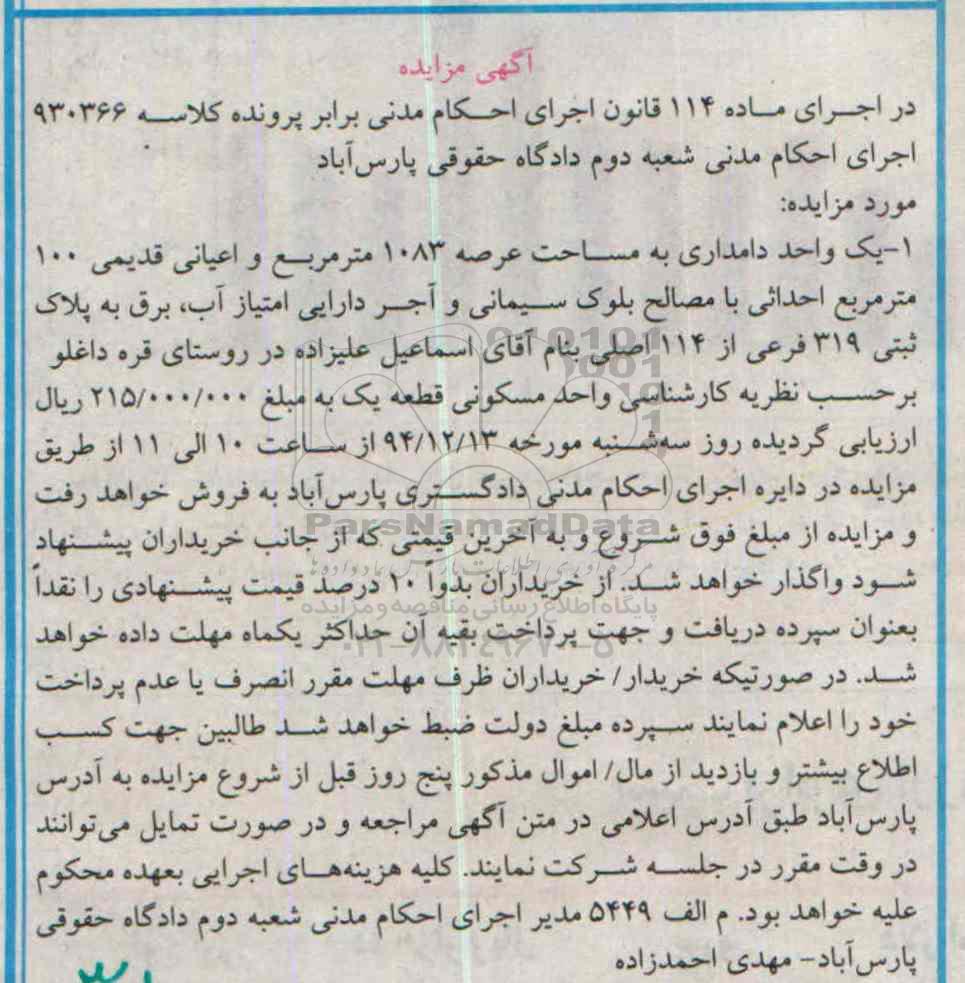 آگهی مزایده
در اجرای ماده ۱۱۴ قانون اجرای احکام مدنی برابر پرونده کلاسه ۹۳۰۳۶۶
اجرای احکام مدنی شعبه دوم دادگاه حقوقی پارس‌آباد
مورد مزایده:
۱-یک واحد دامداری به مساحت عرصه ۱۰۸۳ مترمربع و اعیانی قدیمی ۱۰۰
مترمربع احداثی با مصالح بلوک سیمانی و آجر دارایی امتیاز آب، برق به پلاک
ثبتی ۳۱۹ فرعی از ۱۱۴ اصلی بنام آقای اسماعیل علیزاده در روستای قره داغلو
برحسب نظریه کارشناسی واحد مسکونی قطعه یک به مبلغ ۲۱۵/۰۰۰/۰۰۰ ریال
ارزیابی گردیده روز سه‌شنبه مورخه ۹۴/۱۲/۱۳ از ساعت ۱۰ الی ۱۱ از طریق
مزایده در دایره اجرای احکام مدنی دادگستری پارس‌آباد به فروش خواهد رفت
و مزایده از مبلغ فوق شروع و به آخرین قیمتی که از جانب خریداران پیشنهاد
شود واگذار خواهد شد. از خریداران بدواً ۱۰ درصد قیمت پیشنهادی را نقداً
بعنوان سپرده دریافت و جهت پرداخت بقیه آن حداکثر یکماه مهلت داده خواهد
شد. در صورتیکه خریدار/ خریداران ظرف مهلت مقرر انصرف یا عدم پرداخت
خود را اعلام نمایند سپرده مبلغ دولت ضبط خواهد شد طالبین جهت کسب
اطلاع بیشتر و بازدید از مال/ اموال مذکور پنج روز قبل از شروع مزایده به آدرس
پارس‌آباد طبق آدرس اعلامی در متن آگهی مراجعه و در صورت تمایل می‌توانند
در وقت مقرر در جلسه شرکت نمایند. کلیه هزینه‌های اجرایی بعهده محکوم
علیه خواهد بود. م الف ۵۴۴۹ مدیر اجرای احکام مدنی شعبه دوم دادگاه حقوقی
پارس‌آباد- مهدی احمدزاده
ParsNamadData
پایگاه اطلاع رسانی مناقصه و مزایده